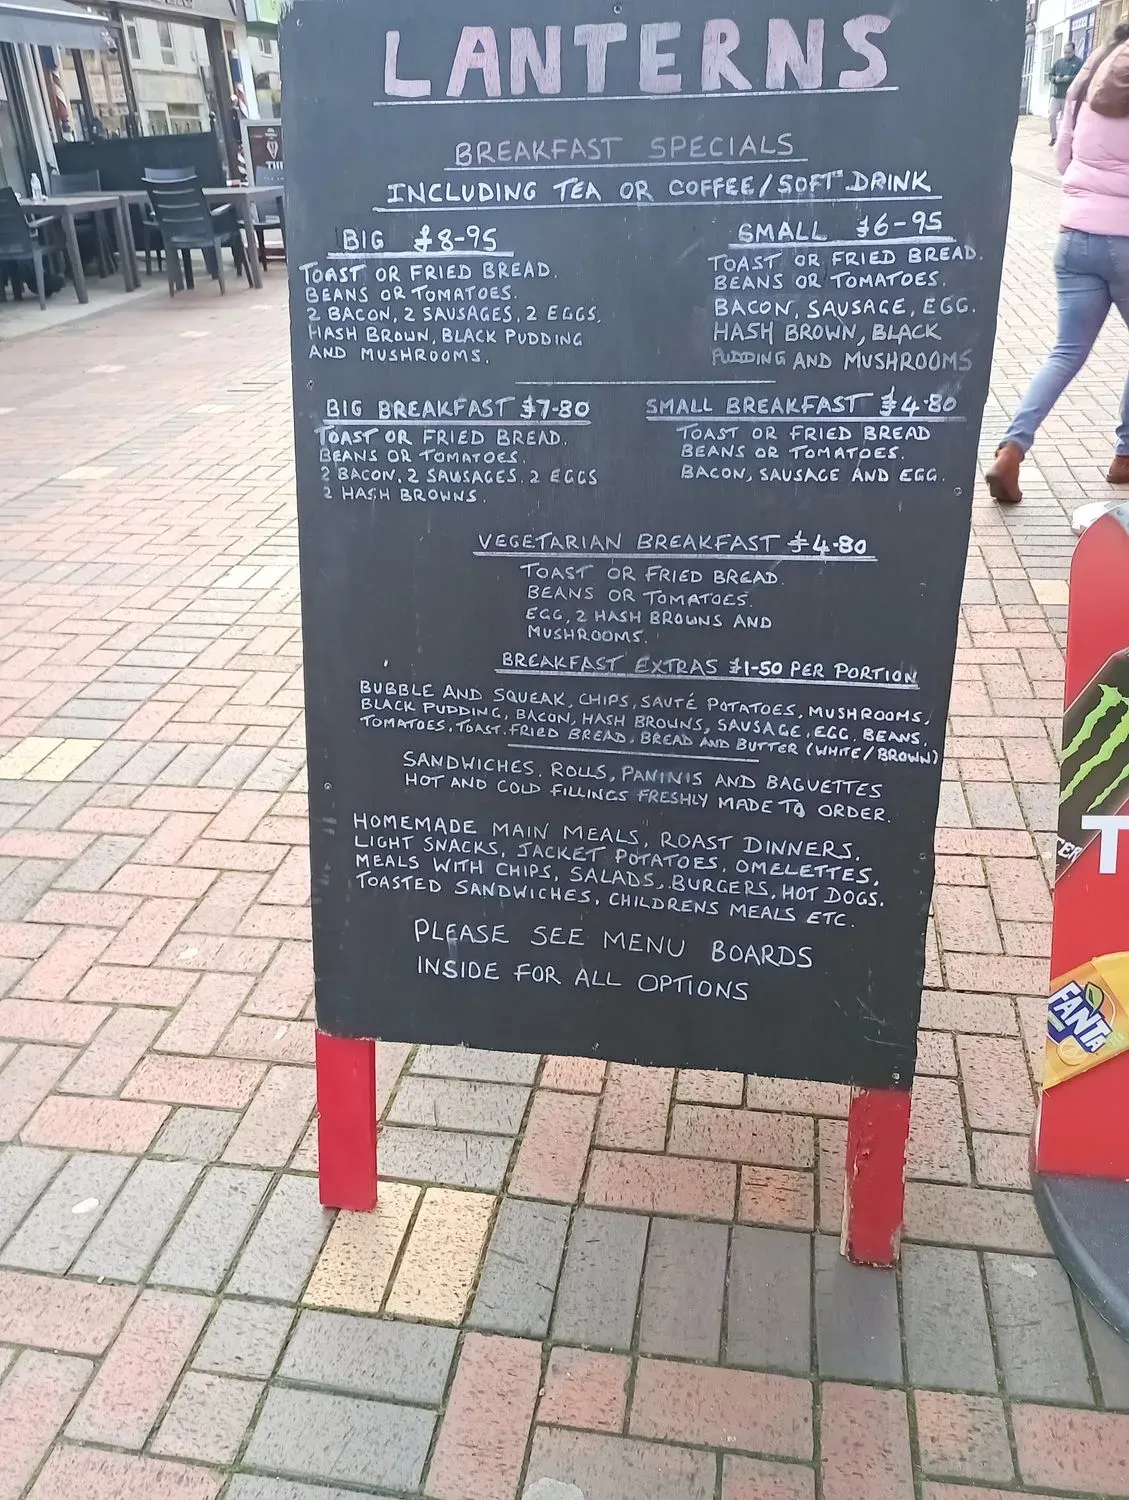 LANTERNS
BREAKFAST SPECIALS
INCLUDING TEA OR COFFEE/SOFT DRINK
BIG £8-95
TOAST OR FRIED BREAD.
BEANS OR TOMATOES.
2 BACON, 2 SAUSAGES, 2 EGGS,
HASH BROWN, BLACK PUDDING
AND MUSHROOMS.
SMALL £6-95
TOAST OR FRIED BREAD.
BEANS OR TOMATOES.
BACON, SAUSAGE, EGG.
HASH BROWN, BLACK
PUDDING AND MUSHROOMS
BIG BREAKFAST £7-80
TOAST OR FRIED BREAD.
BEANS OR TOMATOES.
2 BACON, 2 SAUSAGES, 2 EGGS
2 HASH BROWNS.
SMALL BREAKFAST £4-80
TOAST OR FRIED BREAD
BEANS OR TOMATOES.
BACON, SAUSAGE AND EGG.
VEGETARIAN BREAKFAST £4-80
TOAST OR FRIED BREAD.
BEANS OR TOMATOES.
EGG, 2 HASH BROWNS AND
MUSHROOMS.
BREAKFAST EXTRAS £1-50 PER PORTION
BUBBLE AND SQUEAK, CHIPS, SAUTÉ POTATOES, MUSHROOMS,
BLACK PUDDING, BACON, HASH BROWNS, SAUSAGE, EGG, BEANS,
TOMATOES, TOAST, FRIED BREAD, BREAD AND BUTTER (WHITE/BROWN)
SANDWICHES, ROLLS, PANINIS AND BAGUETTES
HOT AND COLD FILLINGS FRESHLY MADE TO ORDER.
HOMEMADE MAIN MEALS, ROAST DINNERS,
LIGHT SNACKS, JACKET POTATOES, OMELETTES,
MEALS WITH CHIPS, SALADS, BURGERS, HOT DOGS,
TOASTED SANDWICHES, CHILDRENS MEALS ETC.
PLEASE SEE MENU BOARDS
INSIDE FOR ALL OPTIONS
FANTA